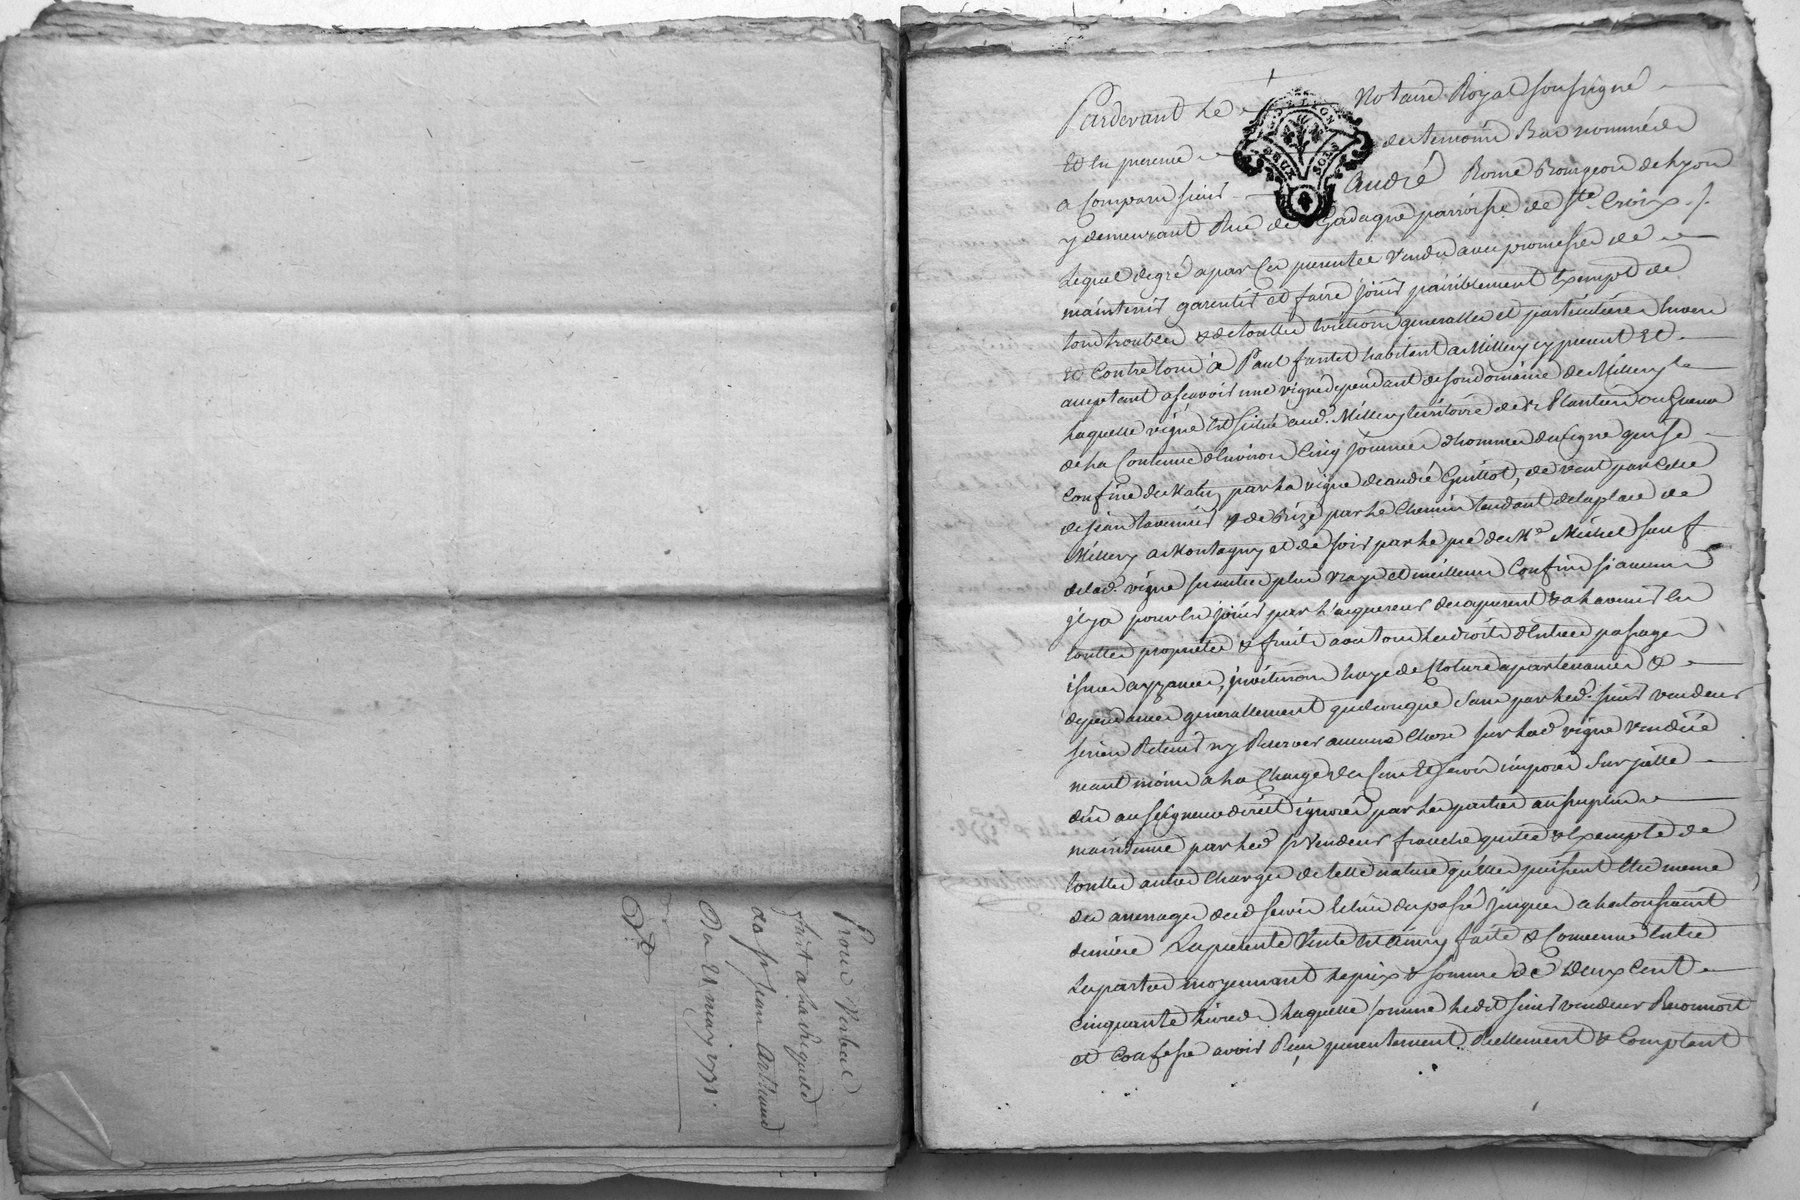 Proces Verbal
fait a la Requete
de sr jean Arthaud
Du 21 may 1771.
Pardevant Le Notaire Royal soussigné
Et En presence des temoins Bas nommés
a Comparu sieur André Rome Bourgeois de Lyon
y demeurant Rue de Gadagne parroisse de Ste Croix ./.
Lequel de gré a par Ces presentes Vendu avec promesse de
maintenir garentir et faire jouir paisiblement Exempt de
tous troubles & de touttes Evictions generalles et particulieres Envers
Et Contre tous à Paul habitant a Millery cy present Et
acceptant a scavoir une vigne dependant de son domaine de Millery
Laquelle vigne Est située aud. Millery territoire des Plantiers ou
de La Contenue d'Environ Cinq journées d'hommes de vigne qui se
Confine de Matin par La vigne de andré Guittot, de vent par Celle
de jean tavernier & de Bize par Le Chemin tendant de la place de
Millery a Montagny et de soir par Le pré de Me Michel sauf
de lad. vigne ses autres plus vrays et meilleurs Confins si aucuns
y a pour En jouir par L'acquereur des a present & a L'avenir En
touttes proprietés & fruits avec tous Les droits d'Entrées passages
issues ayzances, haye de Cloture apartenances &
dependances generallement quelconques sans par Led. sieur vendeur
s'en Rien Retenir ny Reserver aucune Chose sur Lad. vigne Vendüe
neant moins a La Charge des Cens Et servis imposés sur jcelle
dûs au seigneur direct ignorés par Les parties au surplus
maintenue par Led. sr Vendeur franche quitte & Exempte de
touttes autres Charges de telle nature qu'elles puissent Etre meme
des arrerages desd. servis Echus du passé jusques a La toussaint
derniere La presente Vente Est ainsy faite & Convenue Entre
Les parties moyennant Le prix & somme de Deux Cent
Cinquante Livres Laquelle somme Ledit sieur vendeur Reconnoit
et Confesse avoir Reçu presentement Reellement & Comptant